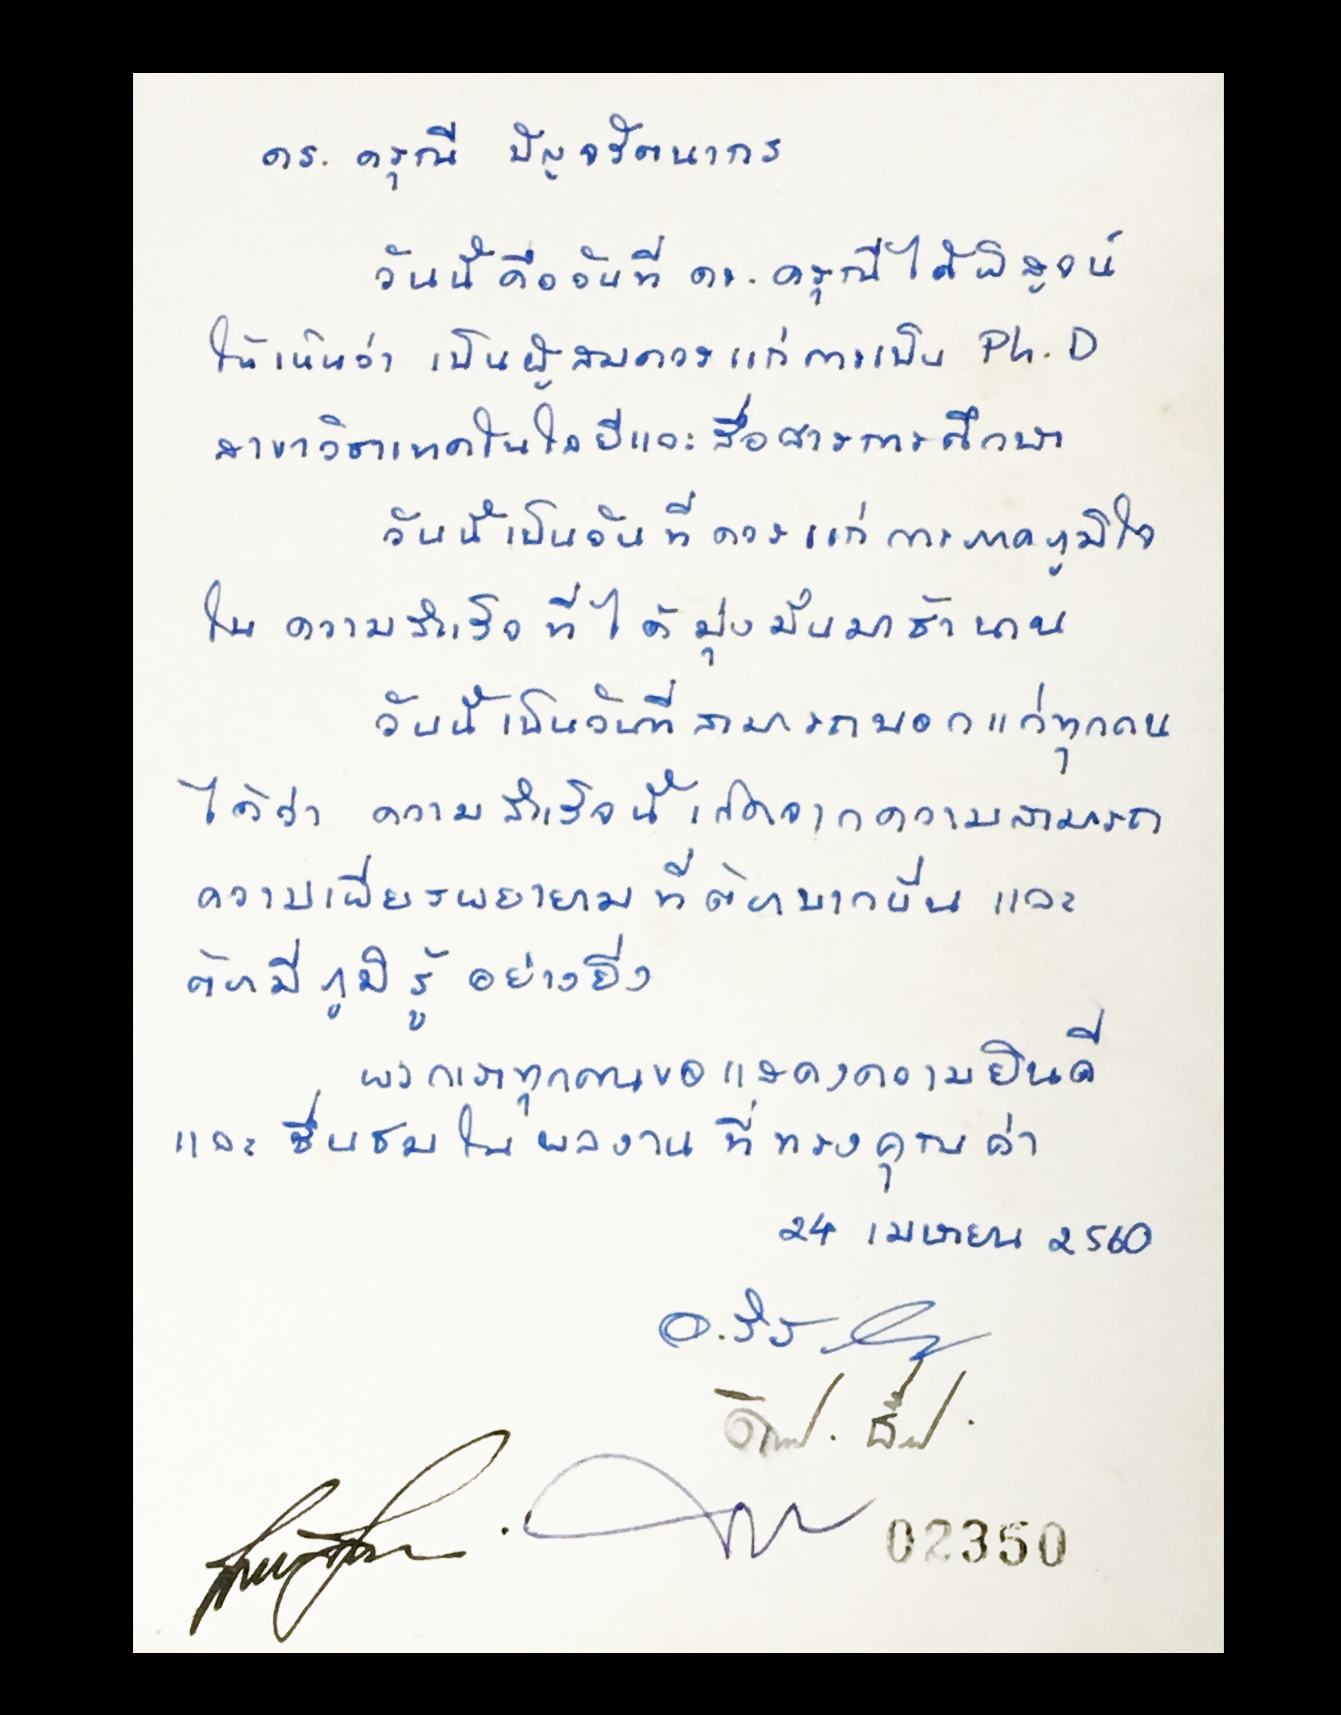 ดร. ดรุณี ปัญจรัตนากร
วันนี้คือวันที่ ดร. ดรุณีได้พิสูจน์
ให้เห็นว่า เป็นผู้สมควรแก่การเป็น Ph.D
สาขาวิชาเทคโนโลยีและสื่อสารการศึกษา
วันนี้เป็นวันที่ควรแก่การภาคภูมิใจ
ใน ความสำเร็จ ที่ได้มุ่งมั่นมาช้านาน
วันนี้เป็นวันที่สามารถบอกแก่ทุกคน
ได้ว่า ความสำเร็จนี้เกิดจากความสามารถ
ความเพียรพยายาม ที่ต้องบากบั่น และ
ต้องมีภูมิรู้ อย่างยิ่ง
พวกเราทุกคนขอแสดงความยินดี
และ ชื่นชมในผลงาน ที่ทรงคุณค่า
24 เมษายน 2560
02350